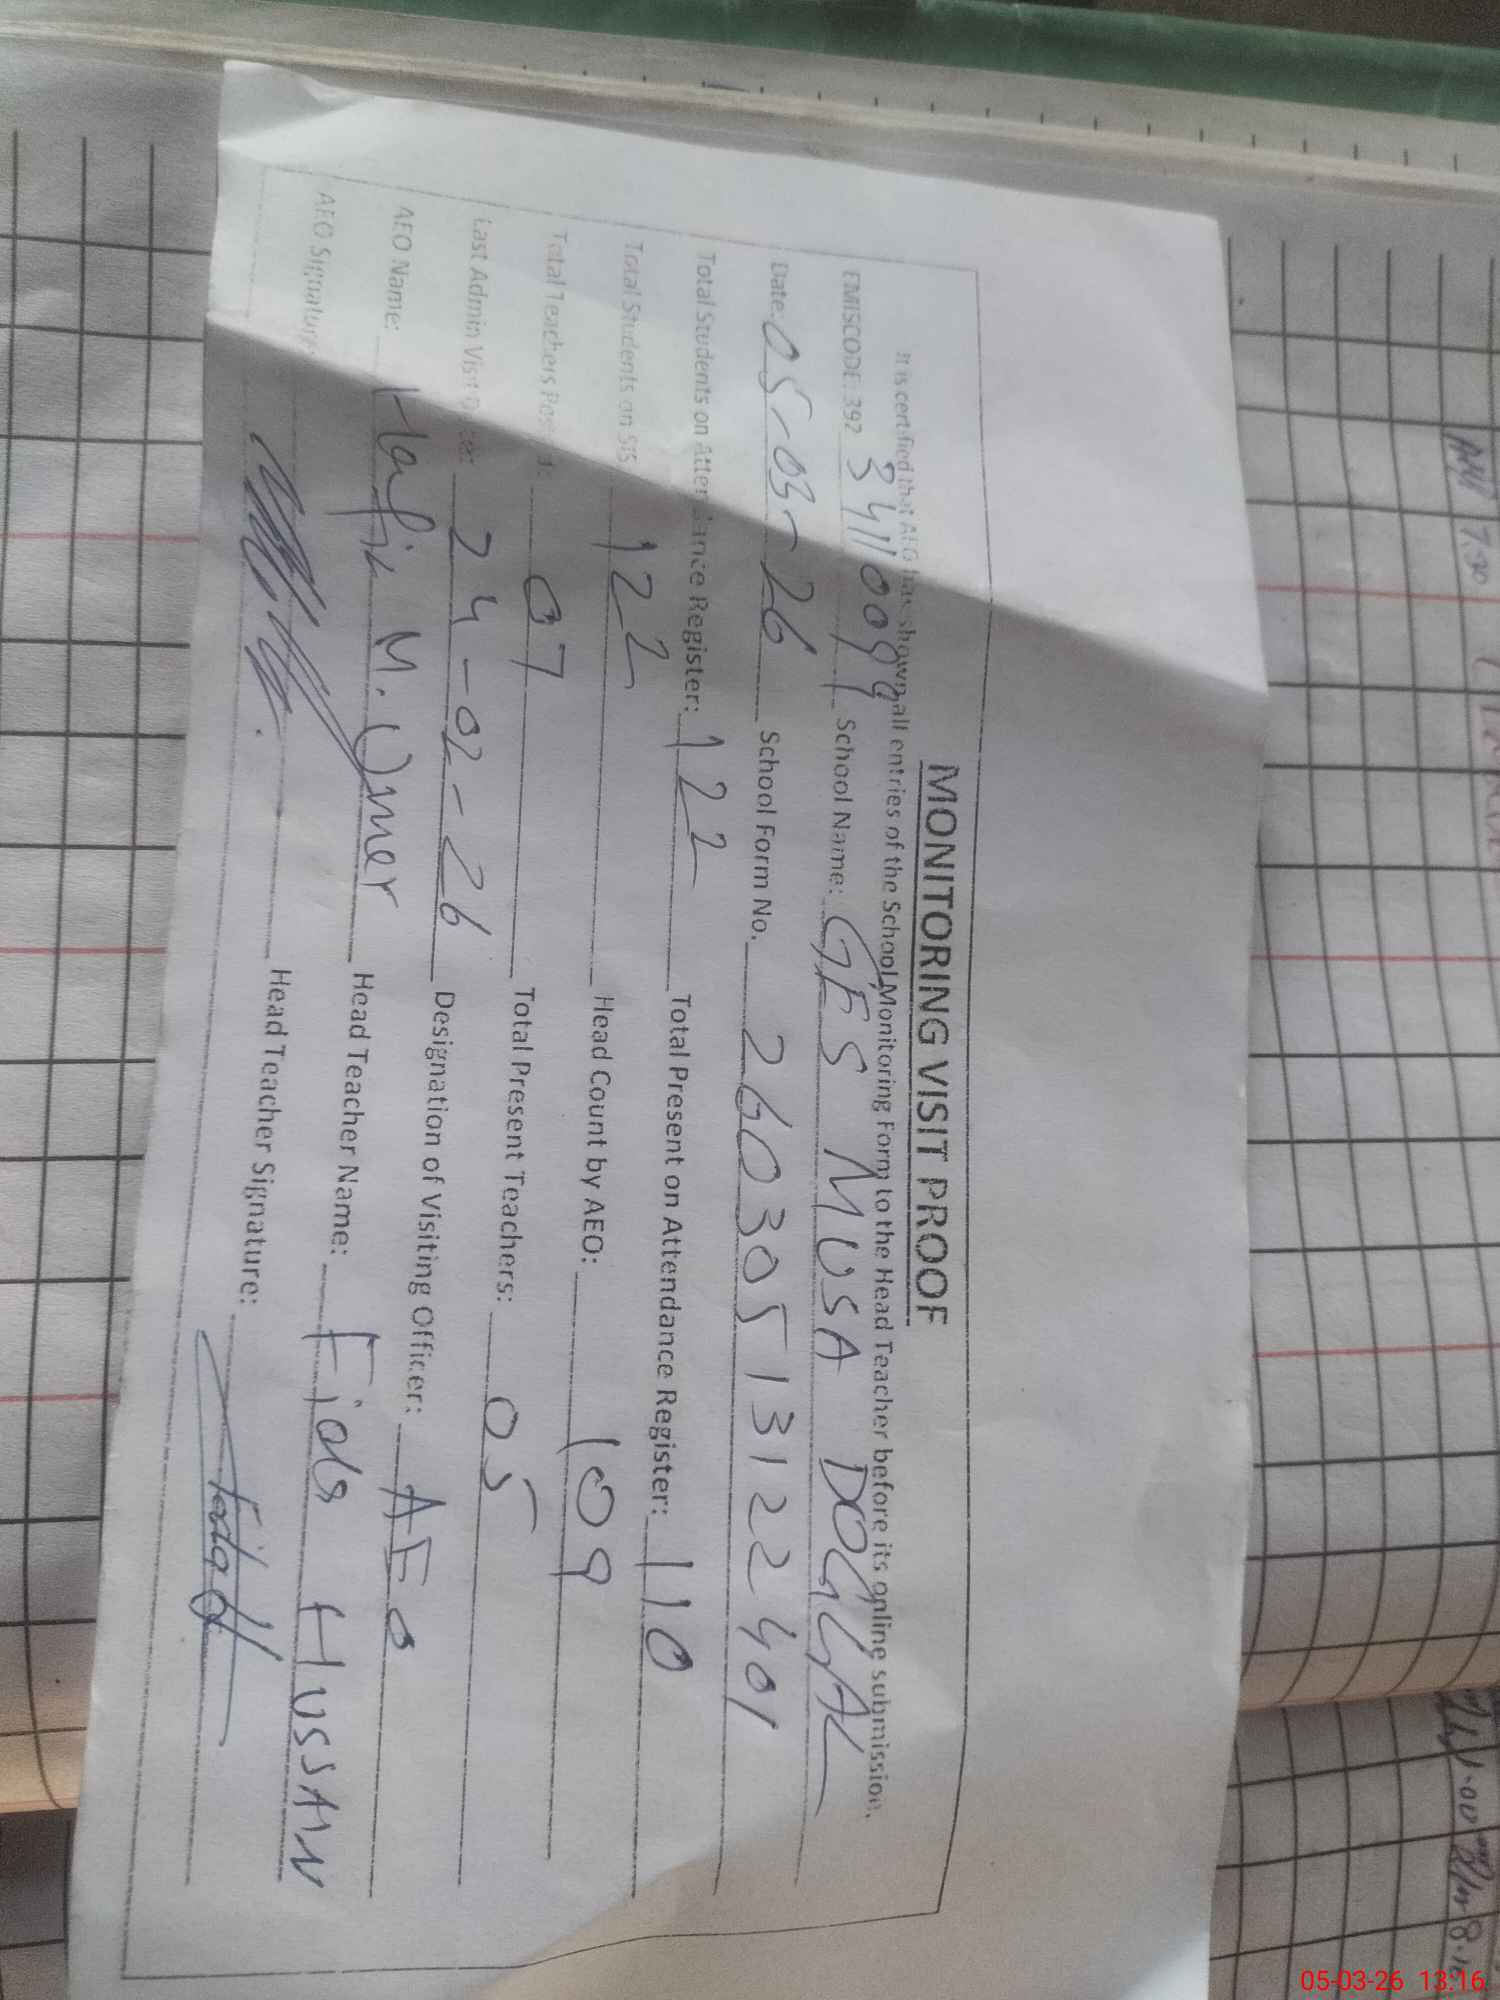 MONITORING VISIT PROOF
It is certified that AEO has shown all entries of the School Monitoring Form to the Head Teacher before its online submission.
EMISCODE: 392 34110099 School Name: GES MUSA DOGAL
Date: 05-03-26 School Form No. 26030513122401
Total Students on Attendance Register: 122 Total Present on Attendance Register: 110
Total Students on SIS 122 Head Count by AEO: 109
Total Teachers 07 Total Present Teachers: 05
Last Admin Visit 24-02-26 Designation of Visiting Officer: AEO
AEO Name: Hafiz M. Umer Head Teacher Name: Fida HUSSAIN
AEO Signature Head Teacher Signature:
05-03-26 13:16